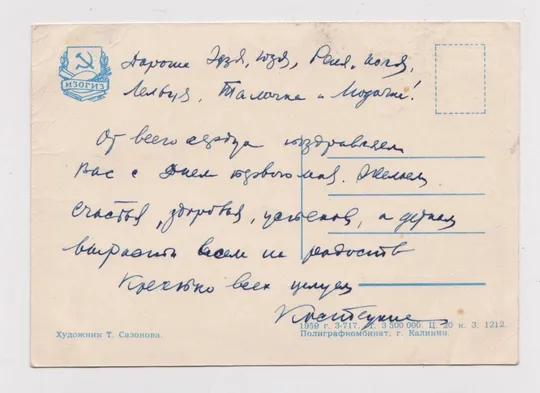 ИЗОГИЗ
Дорогие Эдзя, Юзя, Реня,
Талочка и
От всего сердца поздравляем
Вас с Днем первого мая. Желаем
счастья, здоровья, успехов, а детям
вырасти всем на радость
Крепко всех целуем
Художник Т. Сазонова.
1959 г. З-717. Т. 3 500 000. Ц. 20 к. З. 1212.
Полиграфкомбинат, г. Калинин.